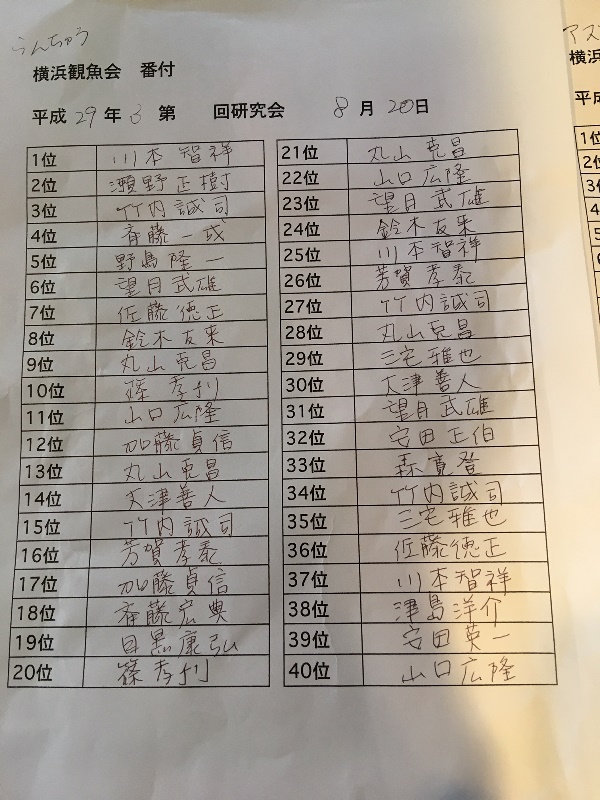 らんちゅう
横浜観魚会 番付
平成 29 年 3 第 回研究会 8 月 20 日
1位 川本智祥
2位 瀬野正樹
3位 竹内誠司
4位 斉藤一成
5位 野島隆一
6位 望月武雄
7位 佐藤徳正
8位 鈴木友来
9位 丸山克昌
10位 篠孝利
11位 山口広隆
12位 加藤貞信
13位 丸山克昌
14位 大津善人
15位 竹内誠司
16位 芳賀孝泰
17位 加藤貞信
18位 斉藤宏典
19位 目黒康弘
20位 篠孝利
21位 丸山克昌
22位 山口広隆
23位 望月武雄
24位 鈴木友来
25位 川本智祥
26位 芳賀孝泰
27位 竹内誠司
28位 丸山克昌
29位 三宅雅也
30位 大津善人
31位 望月武雄
32位 安田正伯
33位 森寛登
34位 竹内誠司
35位 三宅雅也
36位 佐藤徳正
37位 川本智祥
38位 津島洋介
39位 安田英一
40位 山口広隆